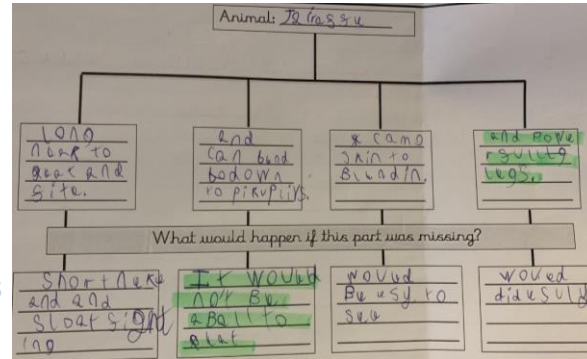 Animal:
long
neak to
and
site.
and
can bend
bodown
to
a camo
skin to
Blendin.
and
legs.
What would happen if this part was missing?
Short neke
and and
sloat sight
ing
It would
not Be
aBall to
eat
would
Be esy to
see
would
die esuly